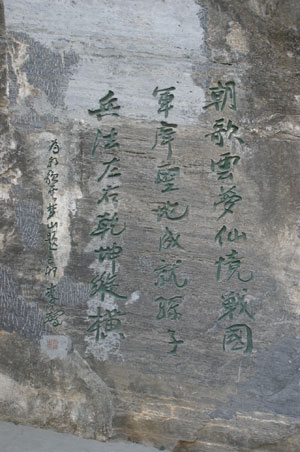 朝歌雲夢仙境戰國
軍庠聖地成就孫子
兵法左右乾坤縱橫